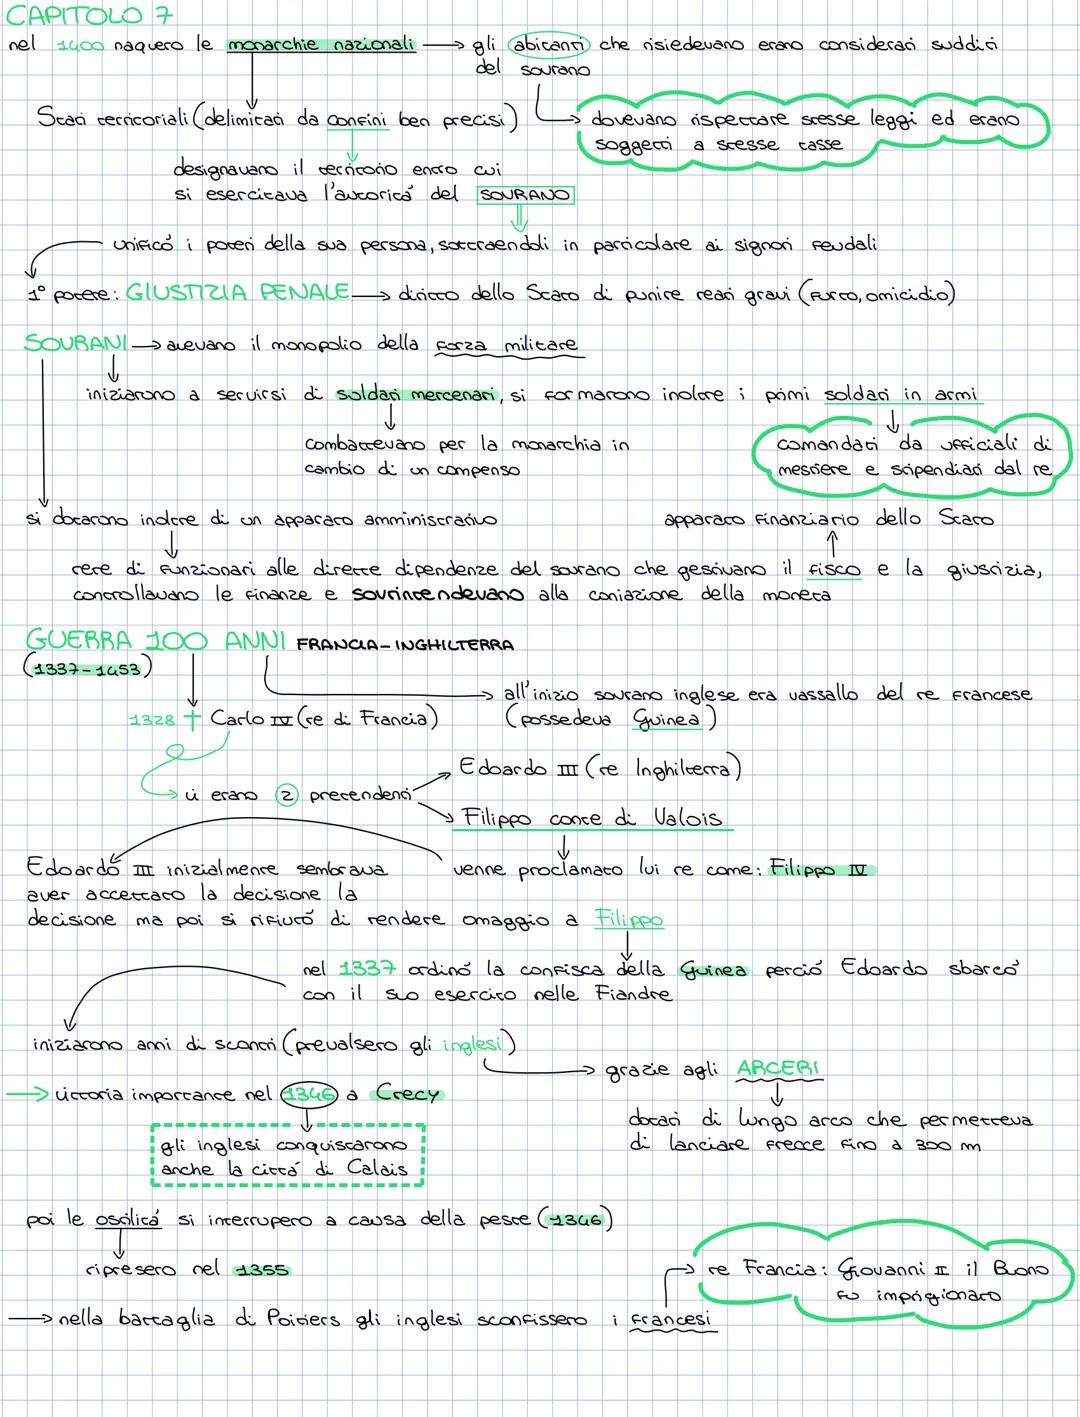 CAPITOLO 7
nel 1400 naquero le monarchie nazionali → gli abitanti che risiedevano erano considerati sudditi
del sovrano
Stati territoriali (delimitati da confini ben precisi)
dovevano rispettare stesse leggi ed erano
soggetti a stesse tasse
designavano il territorio entro cui
si esercitava l'autoritá del SOVRANO
unificó i poteri della sua persona, sottraendoli in particolare ai signori feudali
1° potere: GIUSTIZIA PENALE → diritto dello Stato di punire reati gravi (furto, omicidio)
SOVRANI → avevano il monopolio della forza militare
iniziarono a servirsi di soldati mercenari, si formarono inoltre i primi soldati in armi
combattevano per la monarchia in
cambio di un compenso
comandati da ufficiali di
mestiere e stipendiati dal re
si dotarono inoltre di un apparato amministrativo
apparato finanziario dello Stato
rete di funzionari alle dirette dipendenze del sovrano che gestivano il fisco e la giustizia,
controllavano le finanze e sovrintendevano alla coniazione della moneta
GUERRA 100 ANNI FRANCIA-INGHILTERRA
(1337-1453)
all'inizio sovrano inglese era vassallo del re francese
(possedeva Guinea)
1328 † Carlo IV (re di Francia)
Edoardo III (re Inghilterra)
vi erano 2 pretendenti
Filippo conte di Valois
Edoardo III inizialmente sembrava
aver accettato la decisione la
decisione ma poi si rifiutó di rendere omaggio a Filippo
venne proclamato lui re come: Filippo IV
nel 1337 ordinó la confisca della Guinea perció Edoardo sbarcó
con il suo esercito nelle Fiandre
iniziarono anni di scontri (prevalsero gli inglesi)
grazie agli ARCERI
→ vittoria importante nel 1346 a Crecy
dotati di lungo arco che permetteva
di lanciare frecce fino a 300 m
gli inglesi conquistarono
anche la cittá di Calais
poi le ostilitá si interrupero a causa della peste (1346)
ripresero nel 1355
re Francia: Giovanni II il Buono
fu imprigionato
→ nella battaglia di Poitiers gli inglesi sconfissero i francesi